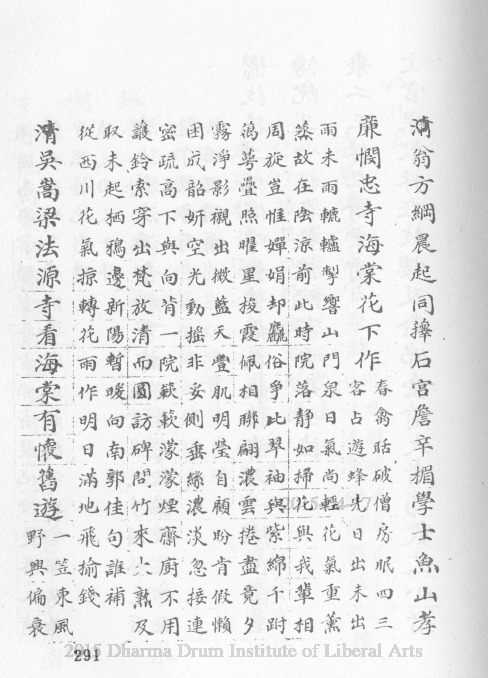 清翁方綱晨起同蘀石官詹辛楣學士魚山孝
廉憫忠寺海棠花下作
春禽聒破僧房眠四三
客占遊蜂先日出未出
雨未雨轆轤掣響山門泉日氣尚輕花氣重薰
蒸故在陰涼前此時院落靜如掃花與我輩相
周旋豈惟嬋娟却麤俗爭此翠袖與紫綿千跗
萬萼疊照曜星投霞佩相聯翩濃雲捲盡竟夕
霧淨影觀出微藍天豐肌明瑩自顧盼肯假懶
困成韶妍空光動搖非妥側垂絲濃淡忽接連
密疏高下與向背一院蔌蔌濛濛煙齋廚不用
叢鈴索穿出梵放清而圓訪碑問竹來熟及
取未起栖鴉邊新陽暫暖向南郭佳句誰補
從西川花氣掠轉花雨作明日滿地飛揄錢
清吳嵩梁法源寺看海棠有懷舊遊
一笠東風
野興偏衰
291
2015 Dharma Drum Institute of Liberal Arts